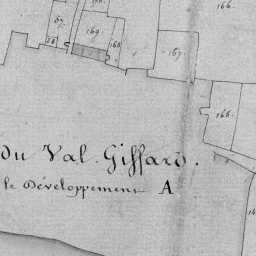 166.
169
168
167.
166.
du Val Giffard.
le Développement A